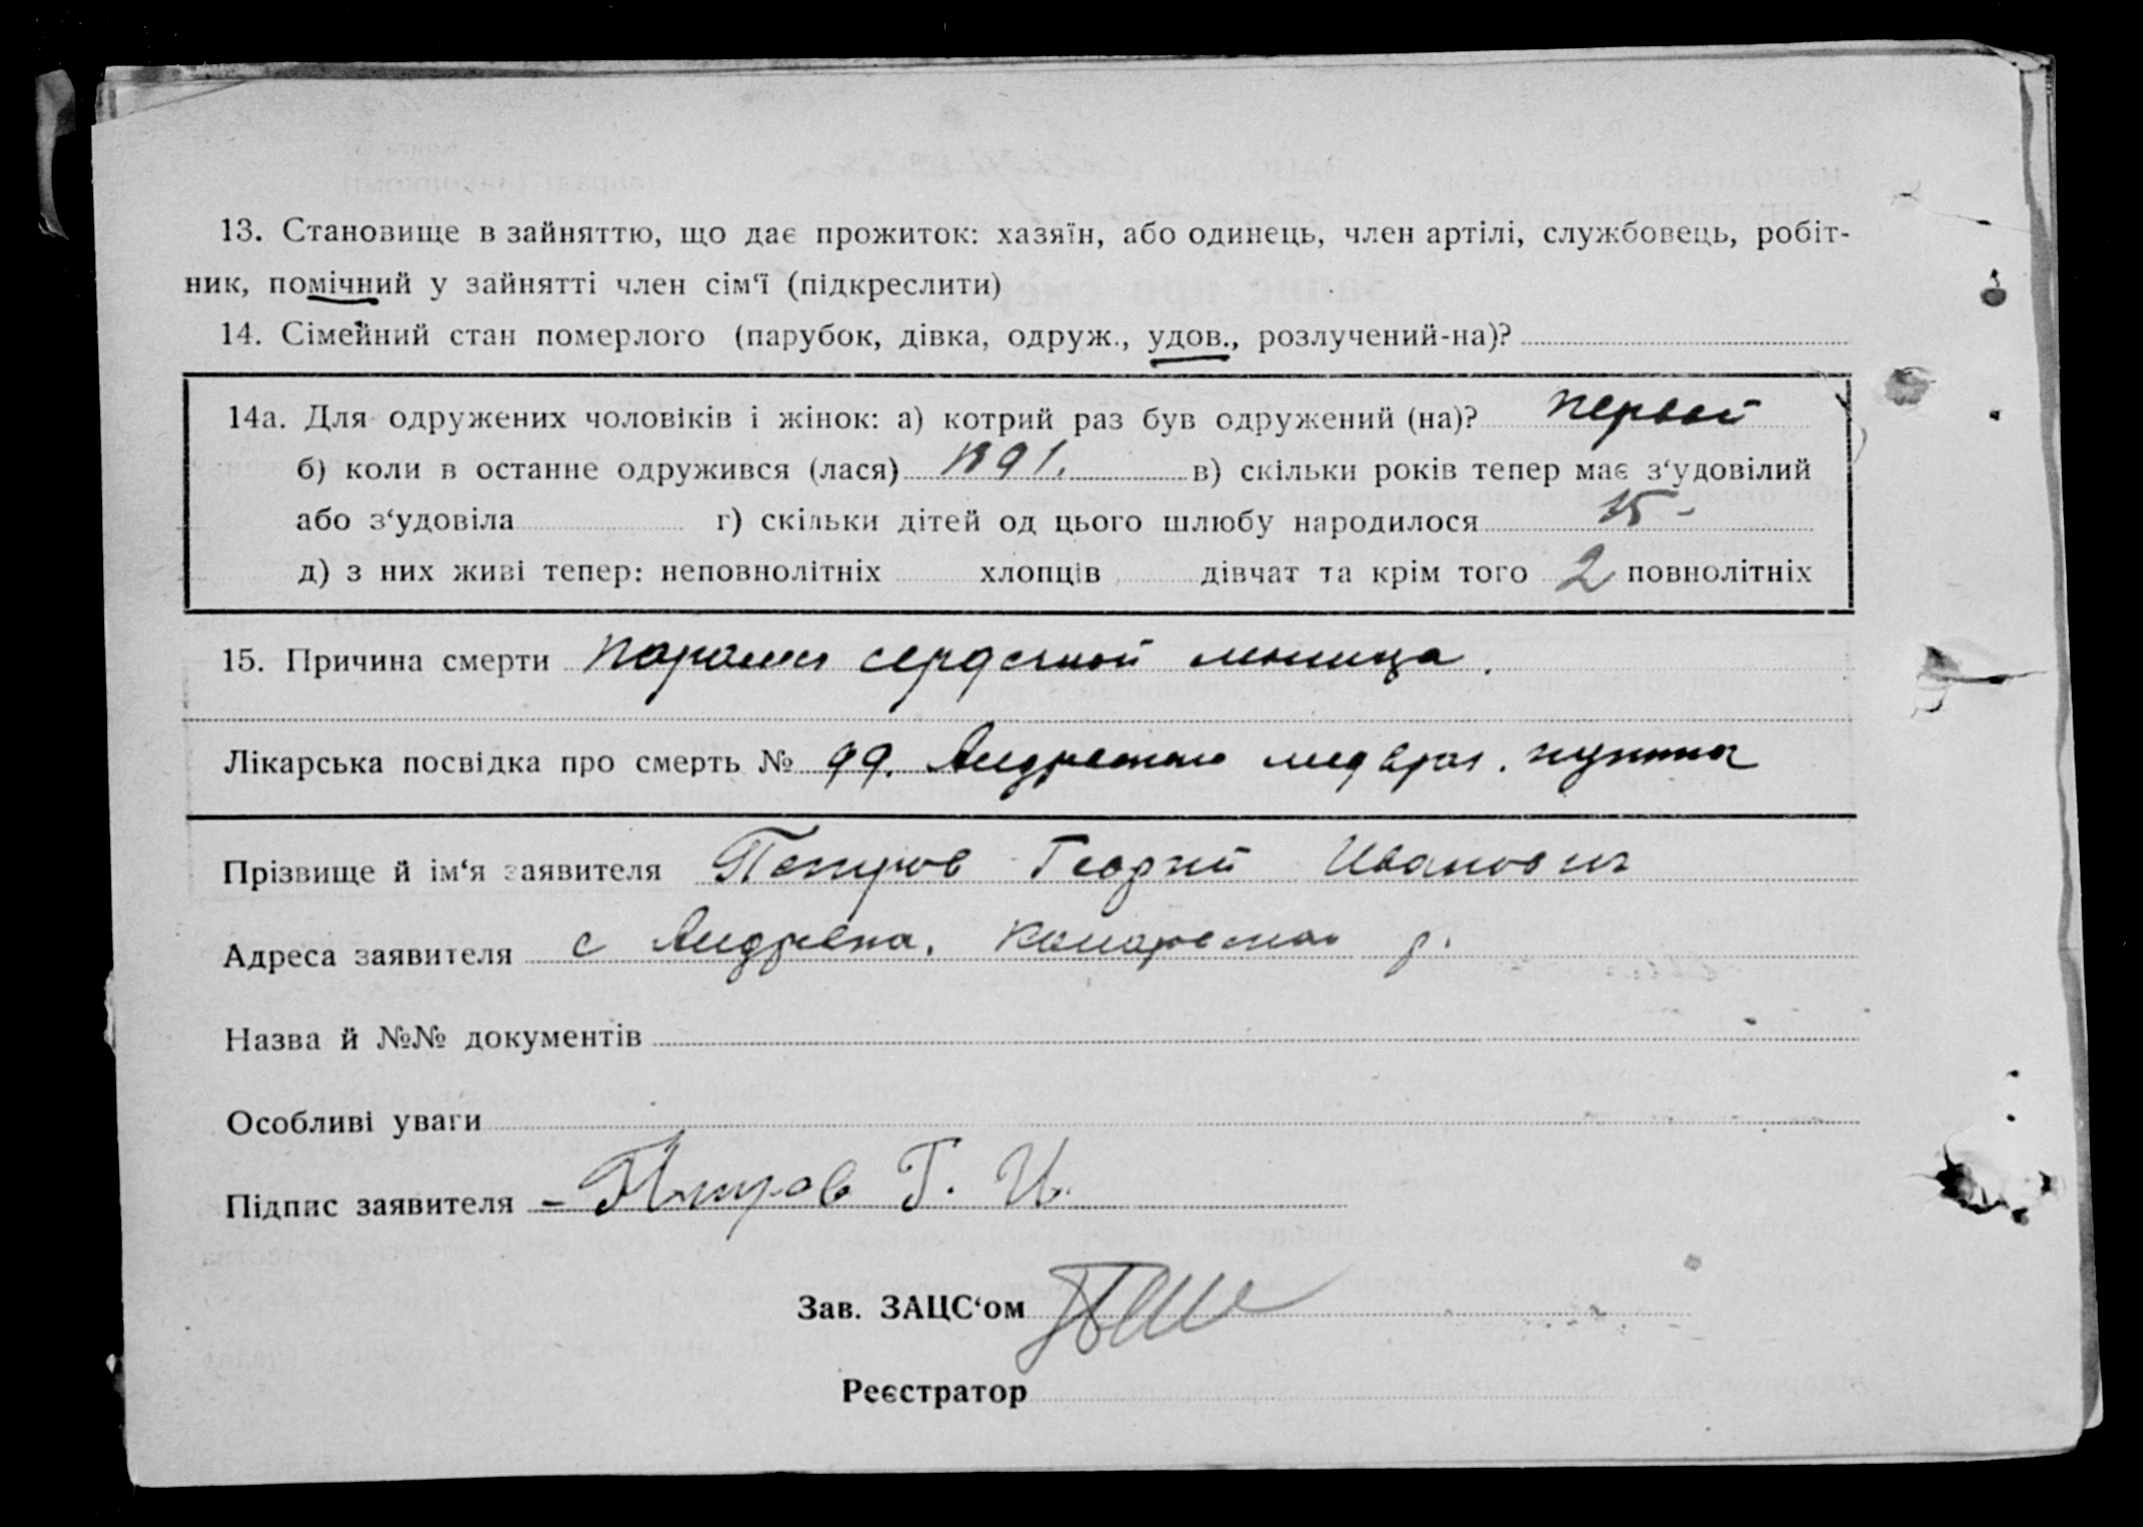 13. Становище в зайняттю, що дає прожиток: хазяїн, або одинець, член артілі, службовець, робіт-
ник, помічний у зайнятті член сім‘ї (підкреслити)
14. Сімейний стан померлого (парубок, дівка, одруж., удов., розлучений-на)?
14а. Для одружених чоловіків і жінок: а) котрий раз був одружений (на)? первый
б) коли в останнє одружився (лася) 1891. в) скільки років тепер має з‘удовілий
або з‘удовіла г) скільки дітей од цього шлюбу народилося 15-
д) з них живі тепер: неповнолітніх хлопців дівчат та крім того 2 повнолітніх
15. Причина смерти паралич сердечной мышцы.
Лікарська посвідка про смерть № 99. пункта
Прізвище й ім‘я заявителя Петров Георгий Иванович
Адреса заявителя с Андреевка. р.
Назва й №№ документів
Особливі уваги
Підпис заявителя - Петров Г. И.
Зав. ЗАЦС‘ом
Реєстратор